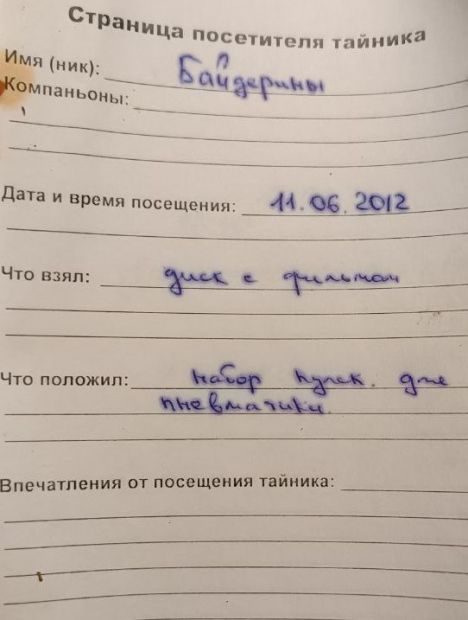 Страница посетителя тайника
Имя (ник): Байдерины
Компаньоны:
Дата и время посещения: 11.06.2012
Что взял: диск с фильмом
Что положил: набор пулек. для
пневматики.
Впечатления от посещения тайника: